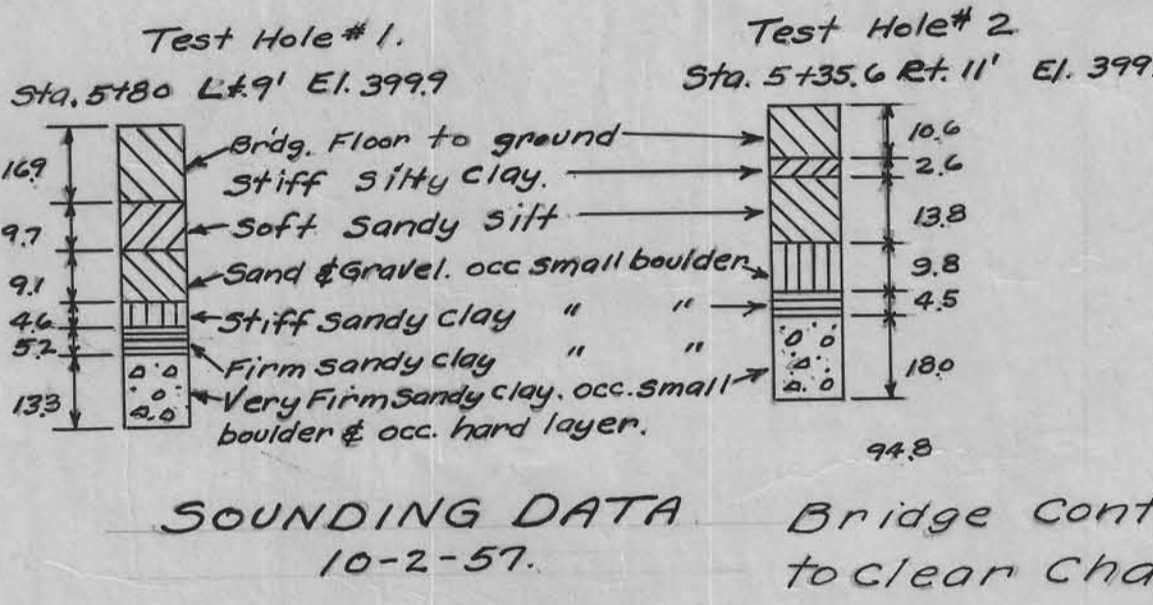 Test Hole # 1.
Sta. 5+80 Lt. 9' El. 399.9
Test Hole # 2
Sta. 5+35.6 Rt. 11' El. 399.
Brdg. Floor to ground
Stiff Silty Clay.
Soft Sandy Silt
Sand & Gravel. occ small boulder
Stiff Sandy Clay " "
Firm Sandy clay " "
Very Firm Sandy clay. occ. small
boulder & occ. hard layer.
16.9
9.7
9.1
4.6
5.2
13.3
10.6
2.6
13.8
9.8
4.5
18.0
94.8
SOUNDING DATA
10-2-57.
Bridge Cont
to clear Cha